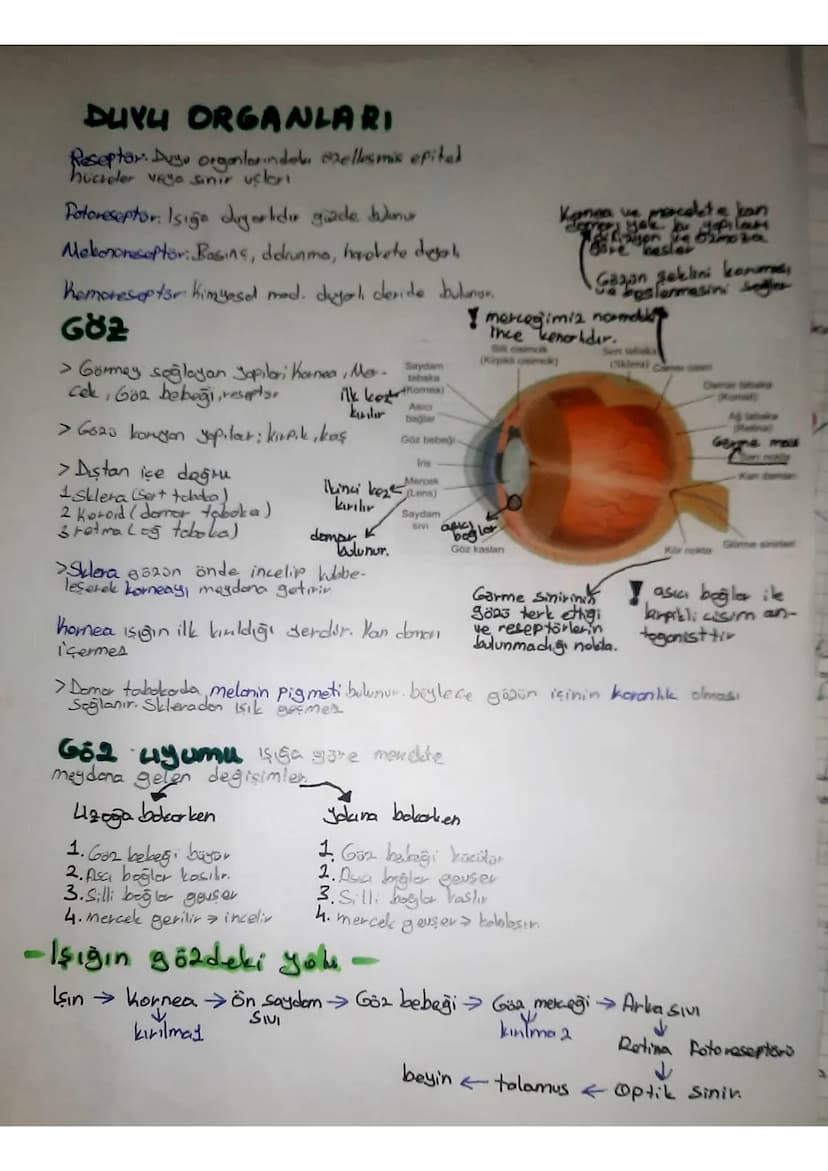 DUYU ORGANLARI
Reseptör: Duyu organlarındaki özelleşmiş epitel
hücreler veya sinir uçları
Fotoreseptör: Işığa duyarlıdır gözde bulunur
Mekanoreseptör: Basınç, dokunma, harekete duyarlı
Kemoreseptör: Kimyasal mad. duyarlı deride bulunur.
Kornea ve mercekte kan
damarı yok bu yapıları
difüzyon ve ozmoza
göre besler
Gözün şeklini koruması
ve beslenmesini sağlar
GÖZ
! merceğimiz normalde
ince kenarlıdır.
> Görmeyi sağlayan yapılar; Kornea, Mer-
cek, Göz bebeği, reseptör
> Gözü koruyan yapılar; kirpik, kaş
> Dıştan içe doğru
1 Sklera (Sert tabaka)
2 Koroid (damar tabaka)
3 retina (ağ tabaka)
Silli cisimcik
(Kirpikli cisimcik)
Sert tabaka
(Sklera)
Camsı cisim
Damar tabaka
(Koroid)
Ağ tabaka
(Retina)
Görme mer.
Sarı nokta
Kan damarı
Görme sinirleri
Kör nokta
Saydam
tabaka
(Kornea)
ilk kez
kırılır
Asıcı
bağlar
Göz bebeği
İris
Mercek
(Lens)
ikinci kez
kırılır
Saydam
sıvı
asıcı
bağlar
Göz kasları
damar
bulunur.
> Sklera gözün önde incelip kübbe-
leşerek korneayı meydana getirir
Kornea ışığın ilk kırıldığı yerdir. Kan damarı
içermez
Görme sinirinin
gözü terk ettiği
ve reseptörlerin
bulunmadığı nokta.
! asıcı bağlar ile
kirpikli cisim an-
tagonisttir
> Damar tabakada melanin pigmeti bulunur. böylece gözün içinin karanlık olması
sağlanır. Skleradan ışık geçmez
Göz uyumu ışığa göre mercekte
meydana gelen değişimler
Uzağa bakarken
1. Göz bebeği büyür
2. Ası bağlar kasılır.
3. Silli bağlar gevşer
4. mercek gerilir > incelir
yakına bakarken
1. Göz bebeği küçülür
2. Ası bağlar gevşer
3. Silli bağlar kasılır
4. mercek gevşer > kalınlaşır.
- Işığın gözdeki yolu -
Işın → Kornea → Ön saydam → Göz bebeği → Göz merceği → Arka sıvı
sıvı
kırılma 1
kırılma 2
Retina Fotoreseptörü
beyin ← talamus ← Optik Sinir.